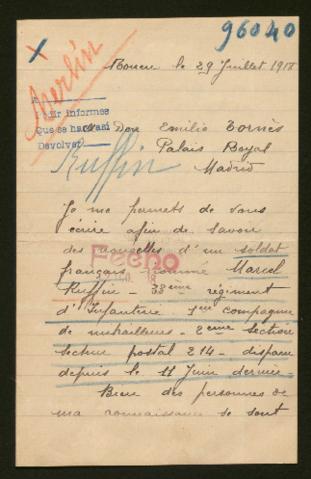 96040
Berlin
Rouen le 29 Juillet 1918
A
Pedir informes
Que se han
Devolver
Ruffin
A Don Emilio Tornès
Palais Royal
Madrid
Je me permets de vous
écrire afin de savoir
des nouvelles d'un soldat
français nommé Marcel
Ruffin - 33ème régiment
d'Infanterie 1ère compagnie
de mitrailleuses - 2ème section
secteur postal 214 - disparu
depuis le 11 Juin dernier.
Bien des personnes de
ma connaissance se sont